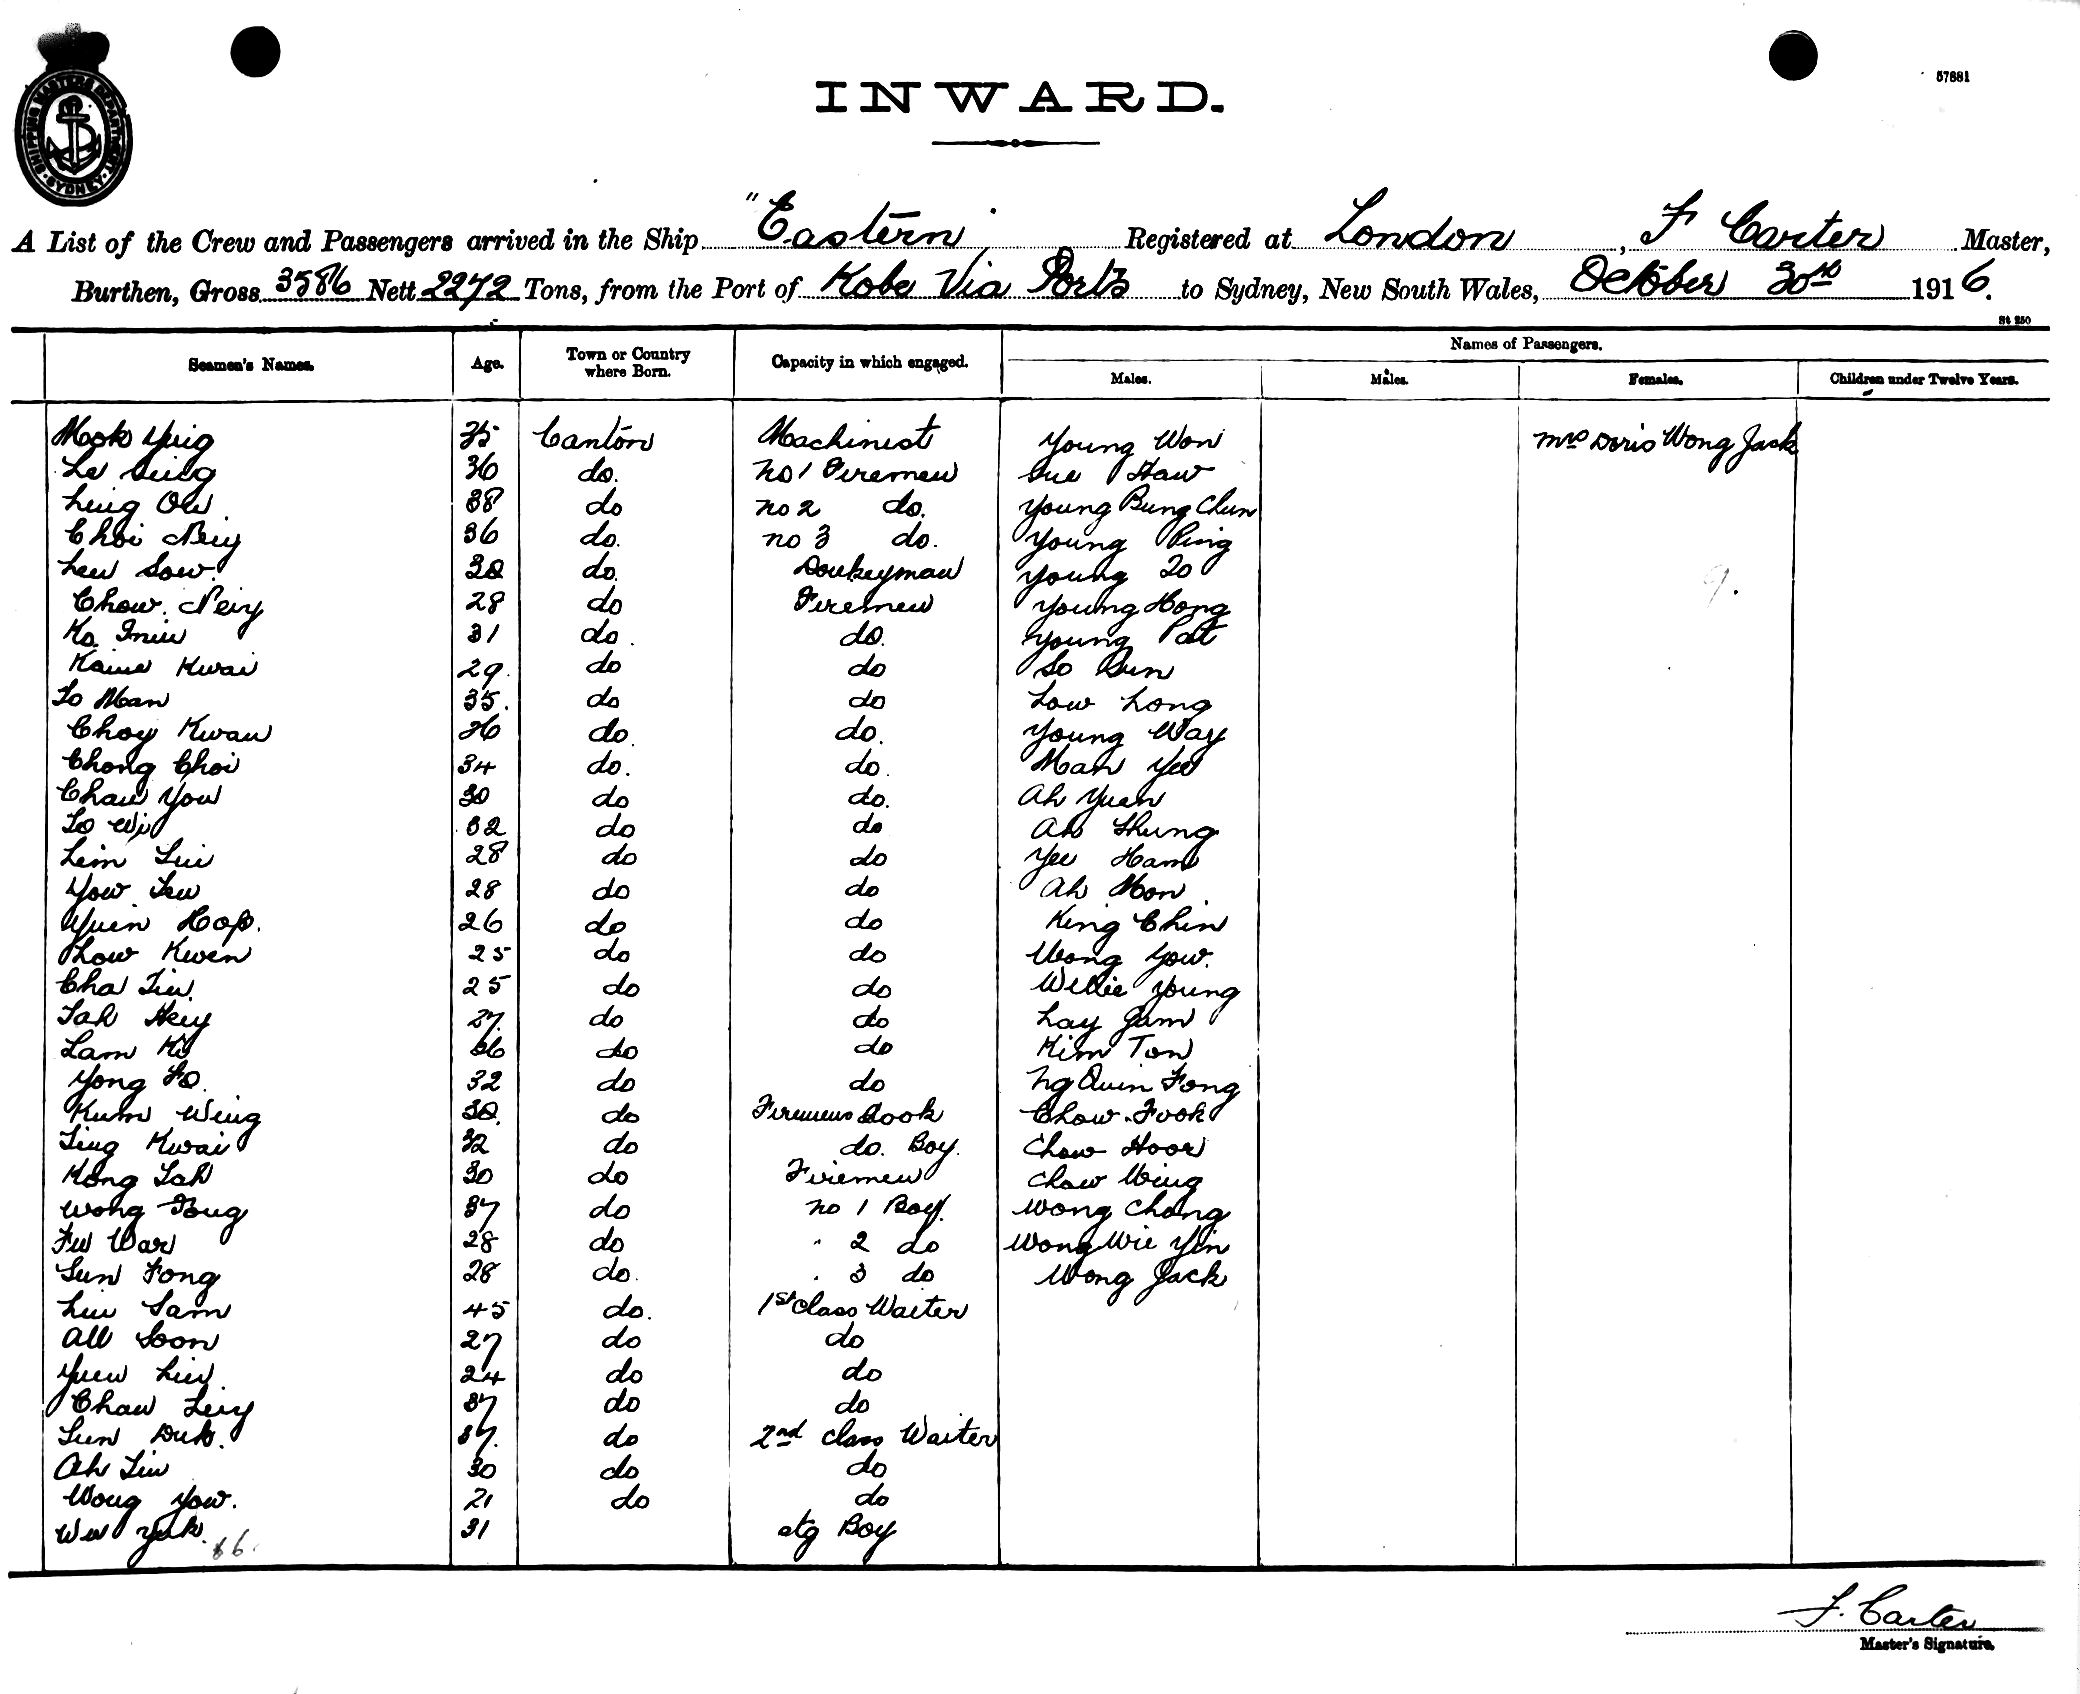 SHIPPING MASTERS DEPARTMENT SYDNEY
57881
INWARD.
A List of the Crew and Passengers arrived in the Ship "Eastern Registered at London, F Carter Master,
Burthen, Gross 3586 Nett 2272 Tons, from the Port of Kobe Via Ports to Sydney, New South Wales, October 30th 1916.
St 250
Seamen's Names. Age. Town or Country where Born. Capacity in which engaged. Names of Passengers.
Males. Males. Females. Children under Twelve Years.
Mook Ying 35 Canton Machinist Young Won Mrs Doris Wong Jack
36 do. No 1 Firemen Sue Haw
Ling 38 do no 2 do. Young Bung Chun
Choi 36 do. no 3 do. Young Ping
Lew Sow. 30 do. Donkeyman Young Zo
Chow 28 do Firemen Young Hong
Ko 31 do. do. Young Pat
Kwai 29. do do So Dun
To Man 35. do do Low Long
Choy Kwan 26 do. do. Young Way
Chong Choi 34 do. do. Man Yee
Chaw You 30 do do. Ah Yuen
To 32 do do Ah Shung
Lim 28 do do Yee Ham
Yow 28 do do Ah Mon
Yuen Hop. 26 do do King Chin
Chow Kwen 25 do do Wong Yow.
Cha 25 do do Willie Young
27. do do Lay Jam
Lam 36 do do Kim Ton
Yong 32 do do Ng Quin Fong
Kum Wing 30. do Firemens Cook Chow Fook
Ting Kwai 32 do do. Boy. Chow Hoor
Kong 30 do Firemen Chow Wing
Wong Tong 37 do no 1 Boy. Wong Chong
Fu War 28 do " 2 do Wong Wie Yin
Sun Fong 28 do. " 3 do Wong Jack
Liu Sam 45 do. 1st class Waiter
Ah Soon 27 do do
Yuen 24 do do
Chaw 37 do do
Sun Duk. 37. do 2nd class Waiter
Ah 30 do do
Wong Yow. 21 do do
Yuk. 31 Boy
F. Carter
Master's Signature.